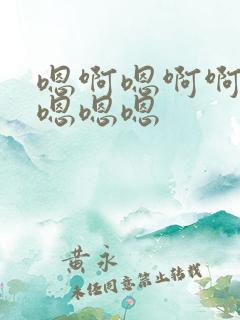 嗯啊嗯啊啊
嗯嗯嗯
黄永
未经同意禁止转载